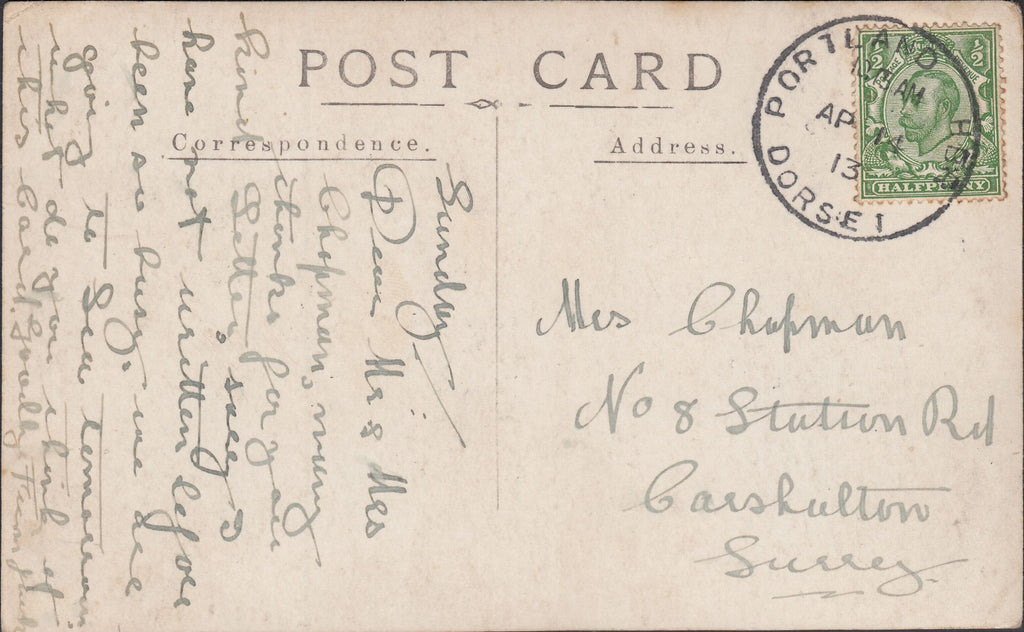 POST CARD
Correspondence.
Address.
PORTLAND
AM
AP 14
13
DORSET
½ ½
HALFPENNY
Mrs Chapman
No 8 Station Rd
Carshalton
Surrey
Sunday.
Dear Mr & Mrs
Chapman, many
thanks for your
kind Letter, sorry I
have not written before
been so busy, we are
going to Sea tomorrow
what do you think of
this Card, Goodbye from